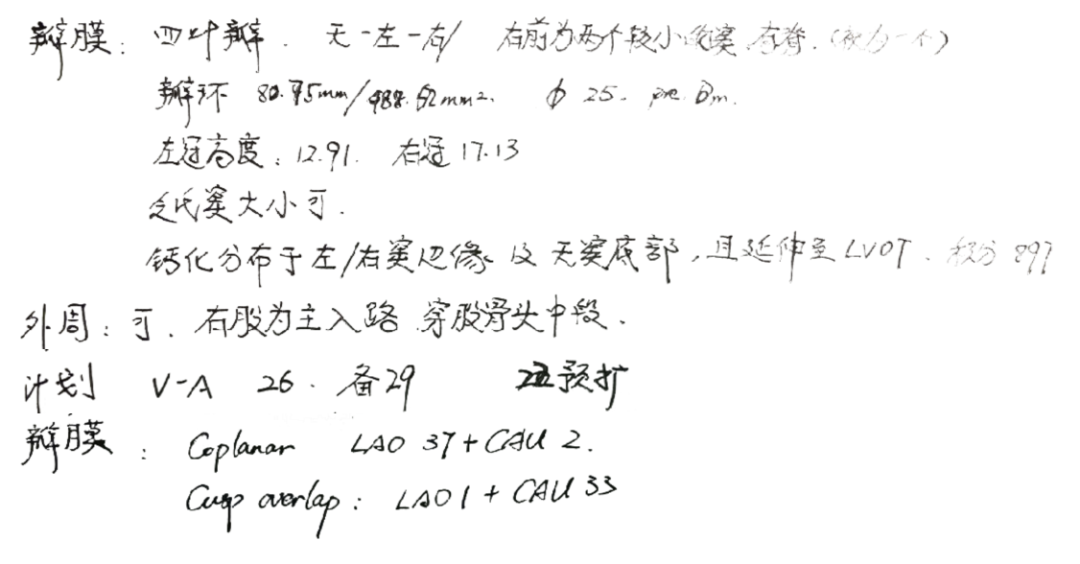 瓣膜： 四叶瓣. 无-左-右/ 右前为两个较小窦 有脊.(视为一个)
瓣环 80.75mm/488.62mm². φ 25.
左冠高度：12.91. 右冠 17.13
氏窦大小可.
钙化分布于左/右窦边缘 及 无窦底部，且延伸至LVOT. 积分 897
外周：可. 右股为主入路 穿股骨头中段.
计划 V-A 26. 备29 预扩
瓣膜： Coplanar LAO 37+CAU 2.
Cusp overlap: LAO 1 + CAU 33